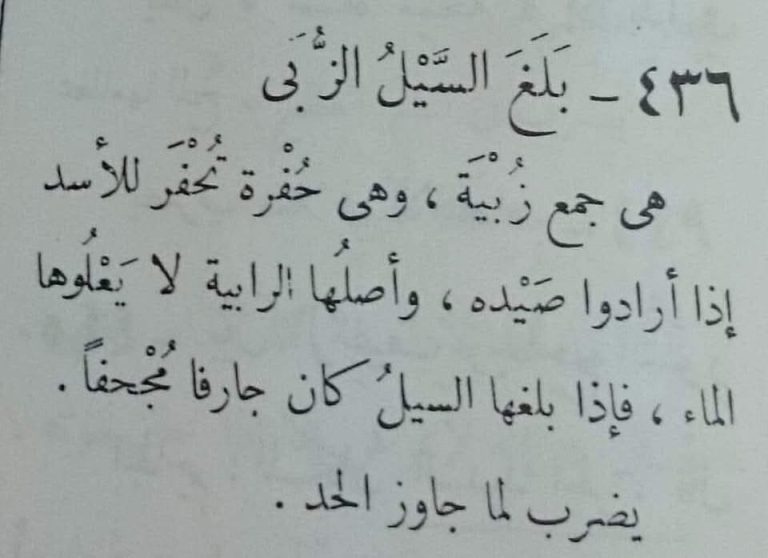 ٤٣٦ – بَلَغَ السَّيْلُ الزُّبَى
هى جمع زُبْيَة ، وهى حُفْرة تُحْفَر للأسد
إذا أرادوا صَيْده ، وأصلُها الرابية لا يَعْلُوها
الماء ، فإذا بلغها السيلُ كان جارفا مُجْحفاً .
يضرب لما جاوز الحد .